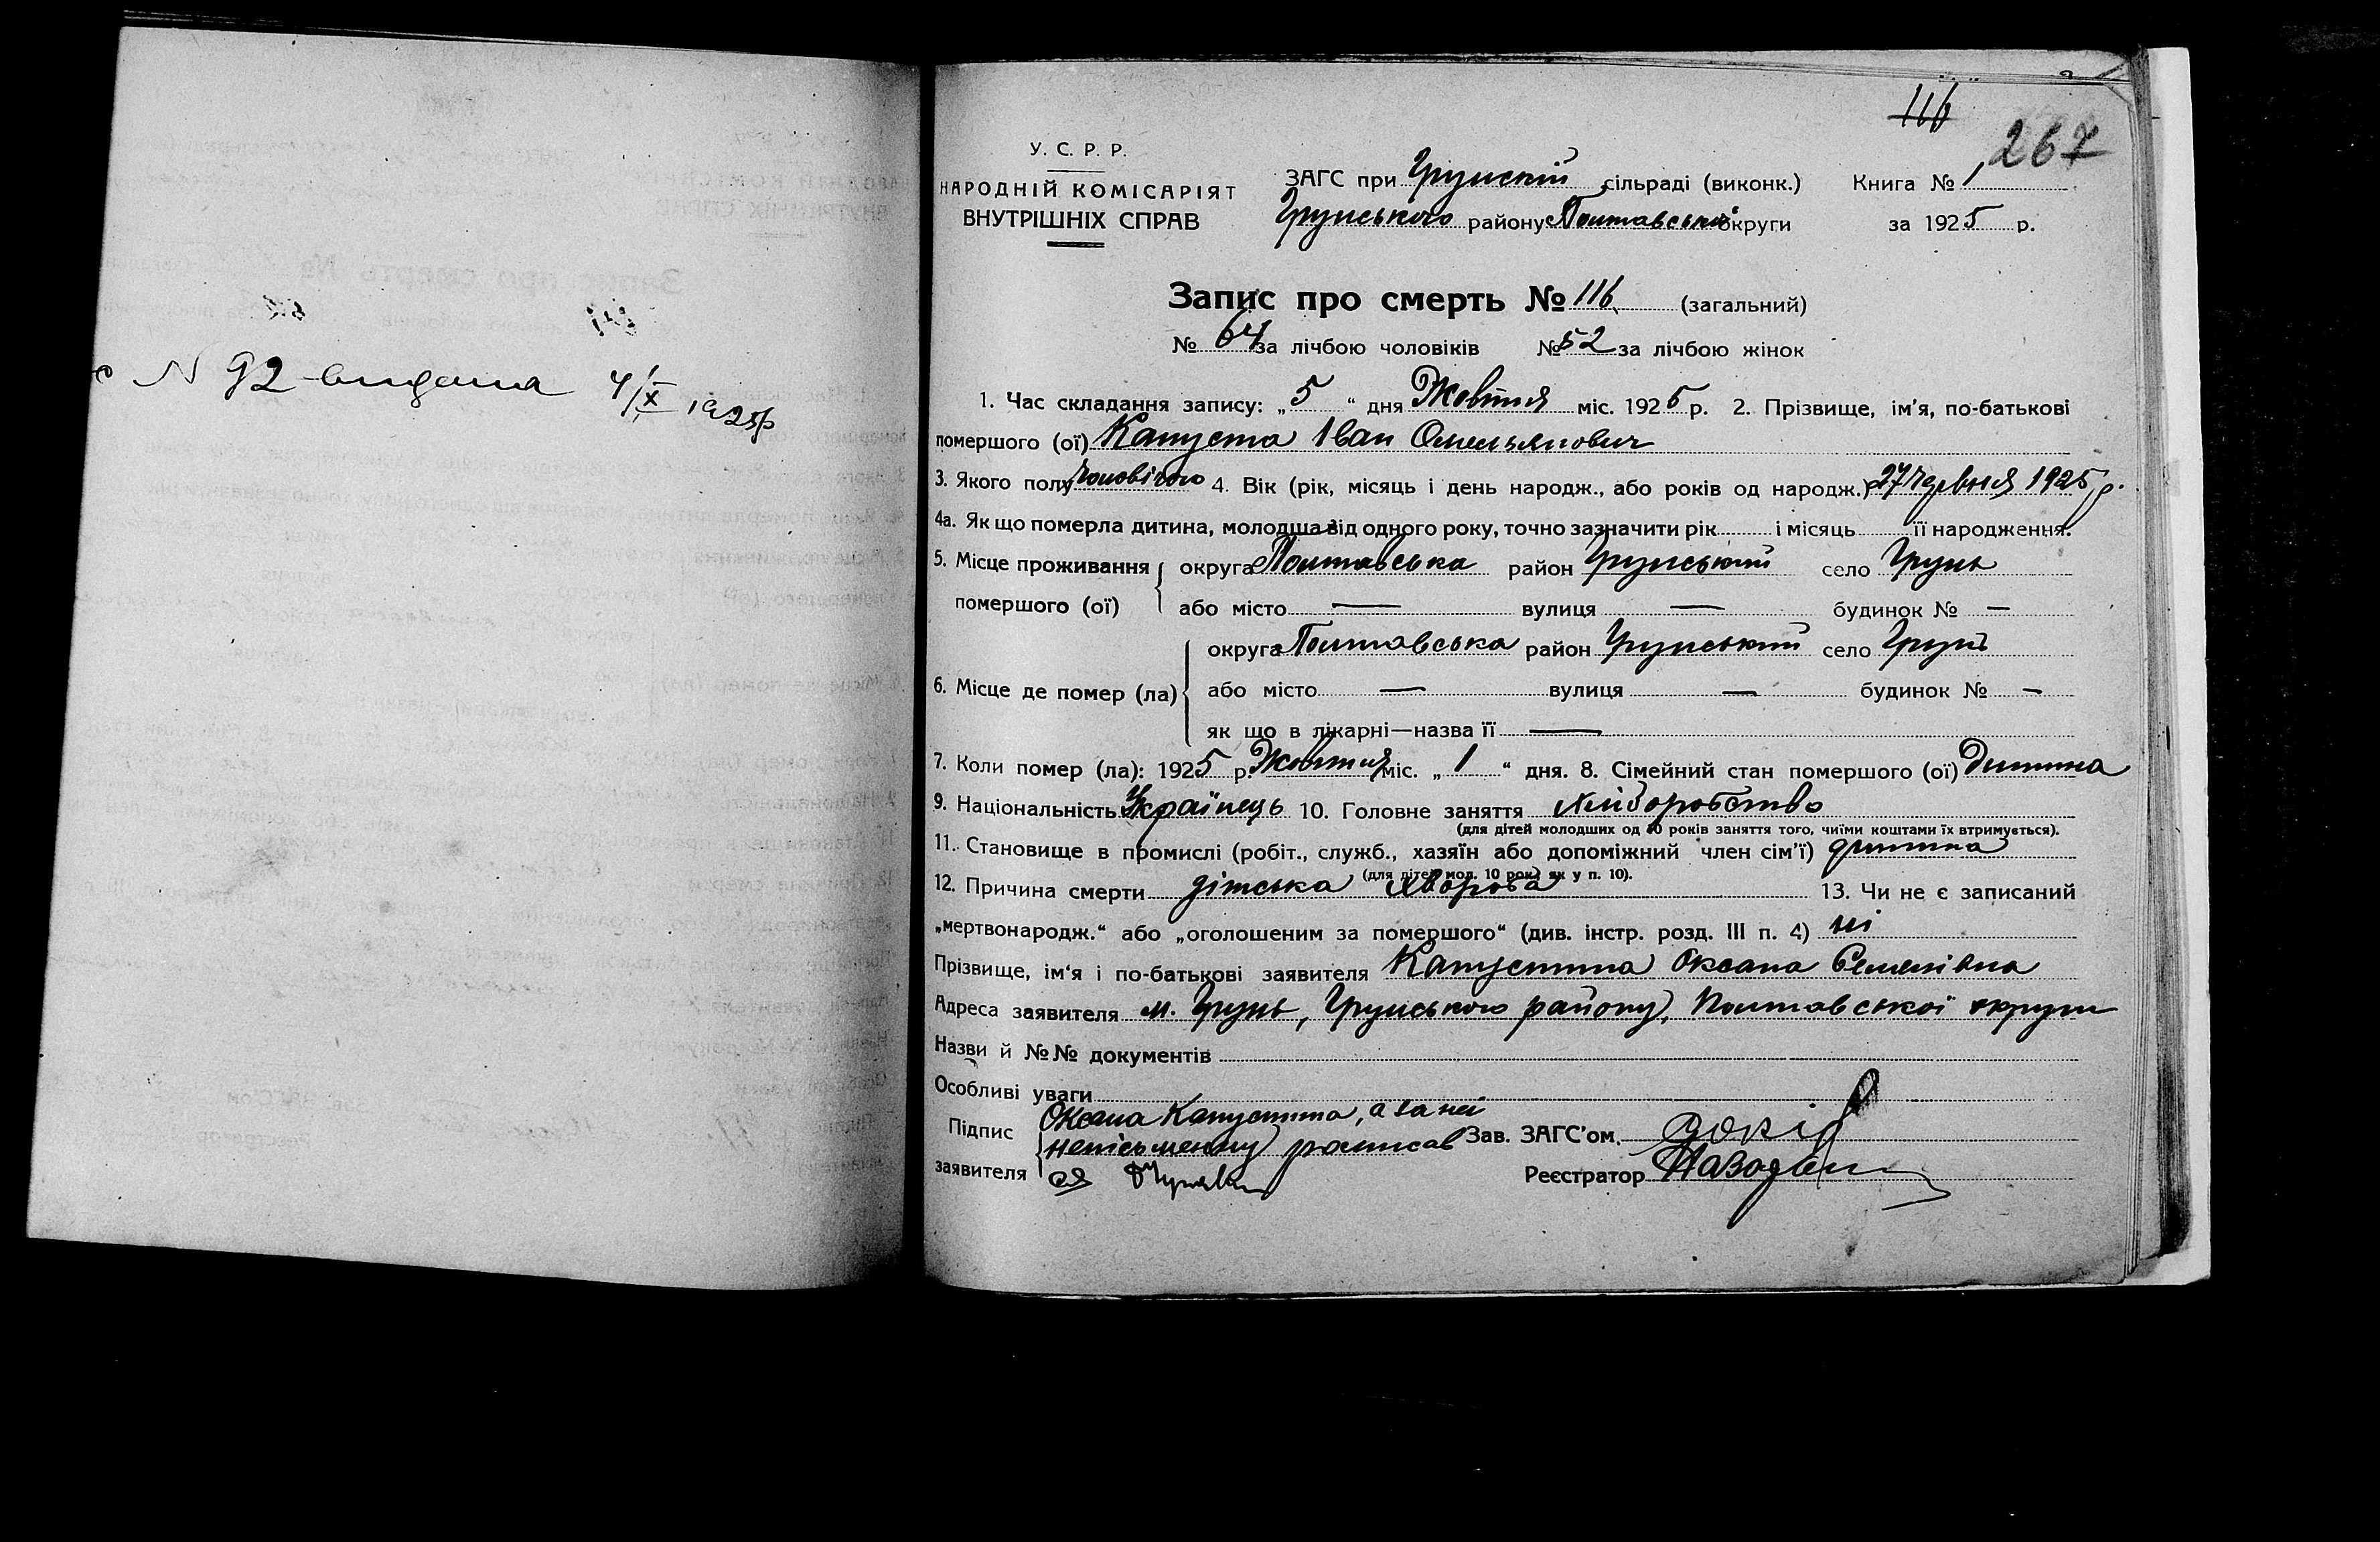 № 92 видана 4/X 1925р
116
267
У. С. Р. Р.
НАРОДНІЙ КОМІСАРІЯТ
ВНУТРІШНІХ СПРАВ
ЗАГС при Грунскій сільраді (виконк.) Книга № 1
Грунського району Полтавської округи за 1925 р.
Запис про смерть № 116 (загальний)
№ 64 за лічбою чоловіків № 52 за лічбою жінок
1. Час складання запису: „5“ дня Жовтня міс. 1925 р. 2. Прізвище, ім'я, по-батькові
помершого (ої) Капуста Іван Омельянович
3. Якого полу чоловічого 4. Вік (рік, місяць і день народж., або років од народж.) 27 червня 1925 р.
4а. Як що померла дитина, молодша від одного року, точно зазначити рік і місяць її народження.
5. Місце проживання округа Полтавська район Грунський село Грунь
помершого (ої) або місто — вулиця — будинок № —
округа Полтавська район Грунський село Грунь
6. Місце де помер (ла) або місто — вулиця — будинок № —
як що в лікарні—назва її —
7. Коли помер (ла): 1925 р. Жовтня міс. „1“ дня. 8. Сімейний стан помершого (ої) Дитина
9. Національність Українець 10. Головне заняття хліборобство
(для дітей молодших од 10 років заняття того, чиїми коштами їх втримується).
11. Становище в промислі (робіт., служб., хазяїн або допоміжний член сім'ї) дитина
(для дітей мол. 10 рок. як у п. 10).
12. Причина смерти дітська хвороба 13. Чи не є записаний
„мертвонародж.“ або „оголошеним за помершого“ (див. інстр. розд. III п. 4) ні
Прізвище, ім'я і по-батькові заявителя Капустина Оксана Семенівна
Адреса заявителя м. Грунь, Грунського району, Полтавської округи
Назви й №№ документів
Особливі уваги
Підпис заявителя Оксана Капустина, а за неї
неписьменну расписав
ся
Зав. ЗАГС'ом.
Реєстратор